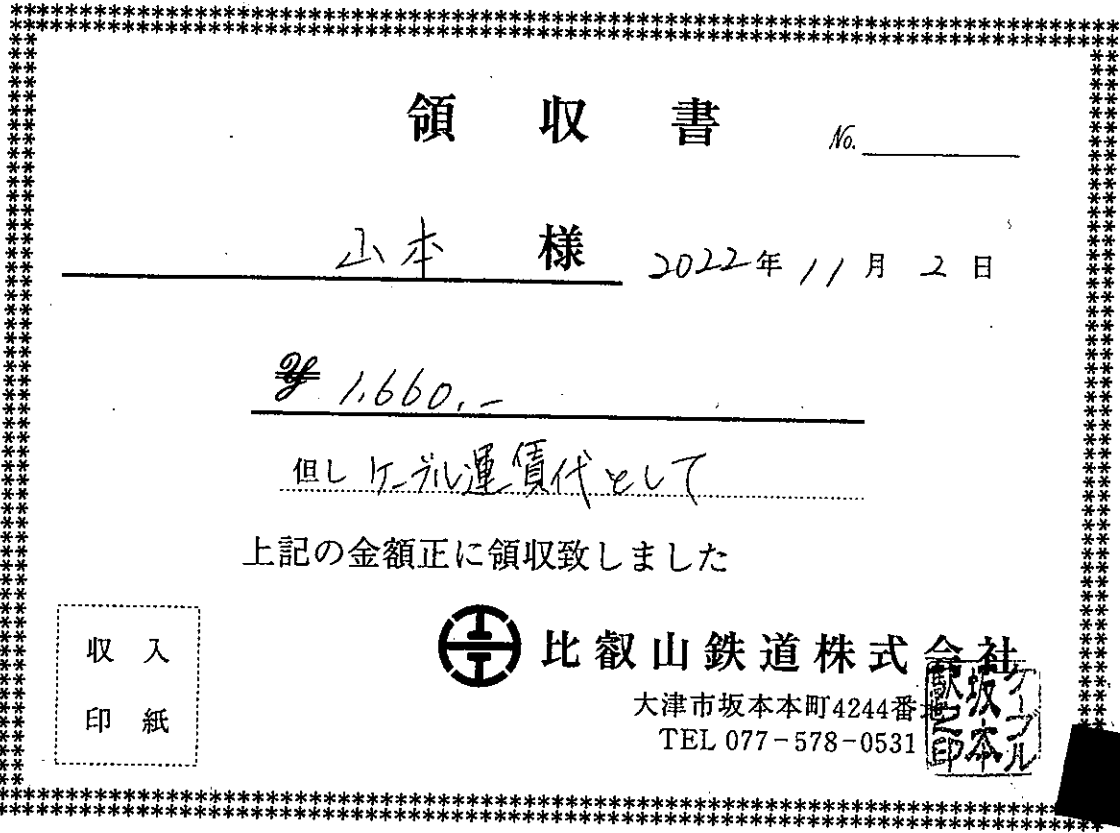 領収書
No.
山本 様 2022年11月2日
¥1,660.-
但し ケーブル運賃代として
上記の金額正に領収致しました
収入
印紙
比叡山鉄道株式会社
大津市坂本本町4244番地
TEL 077-578-0531
ケーブル
坂本
駅之印